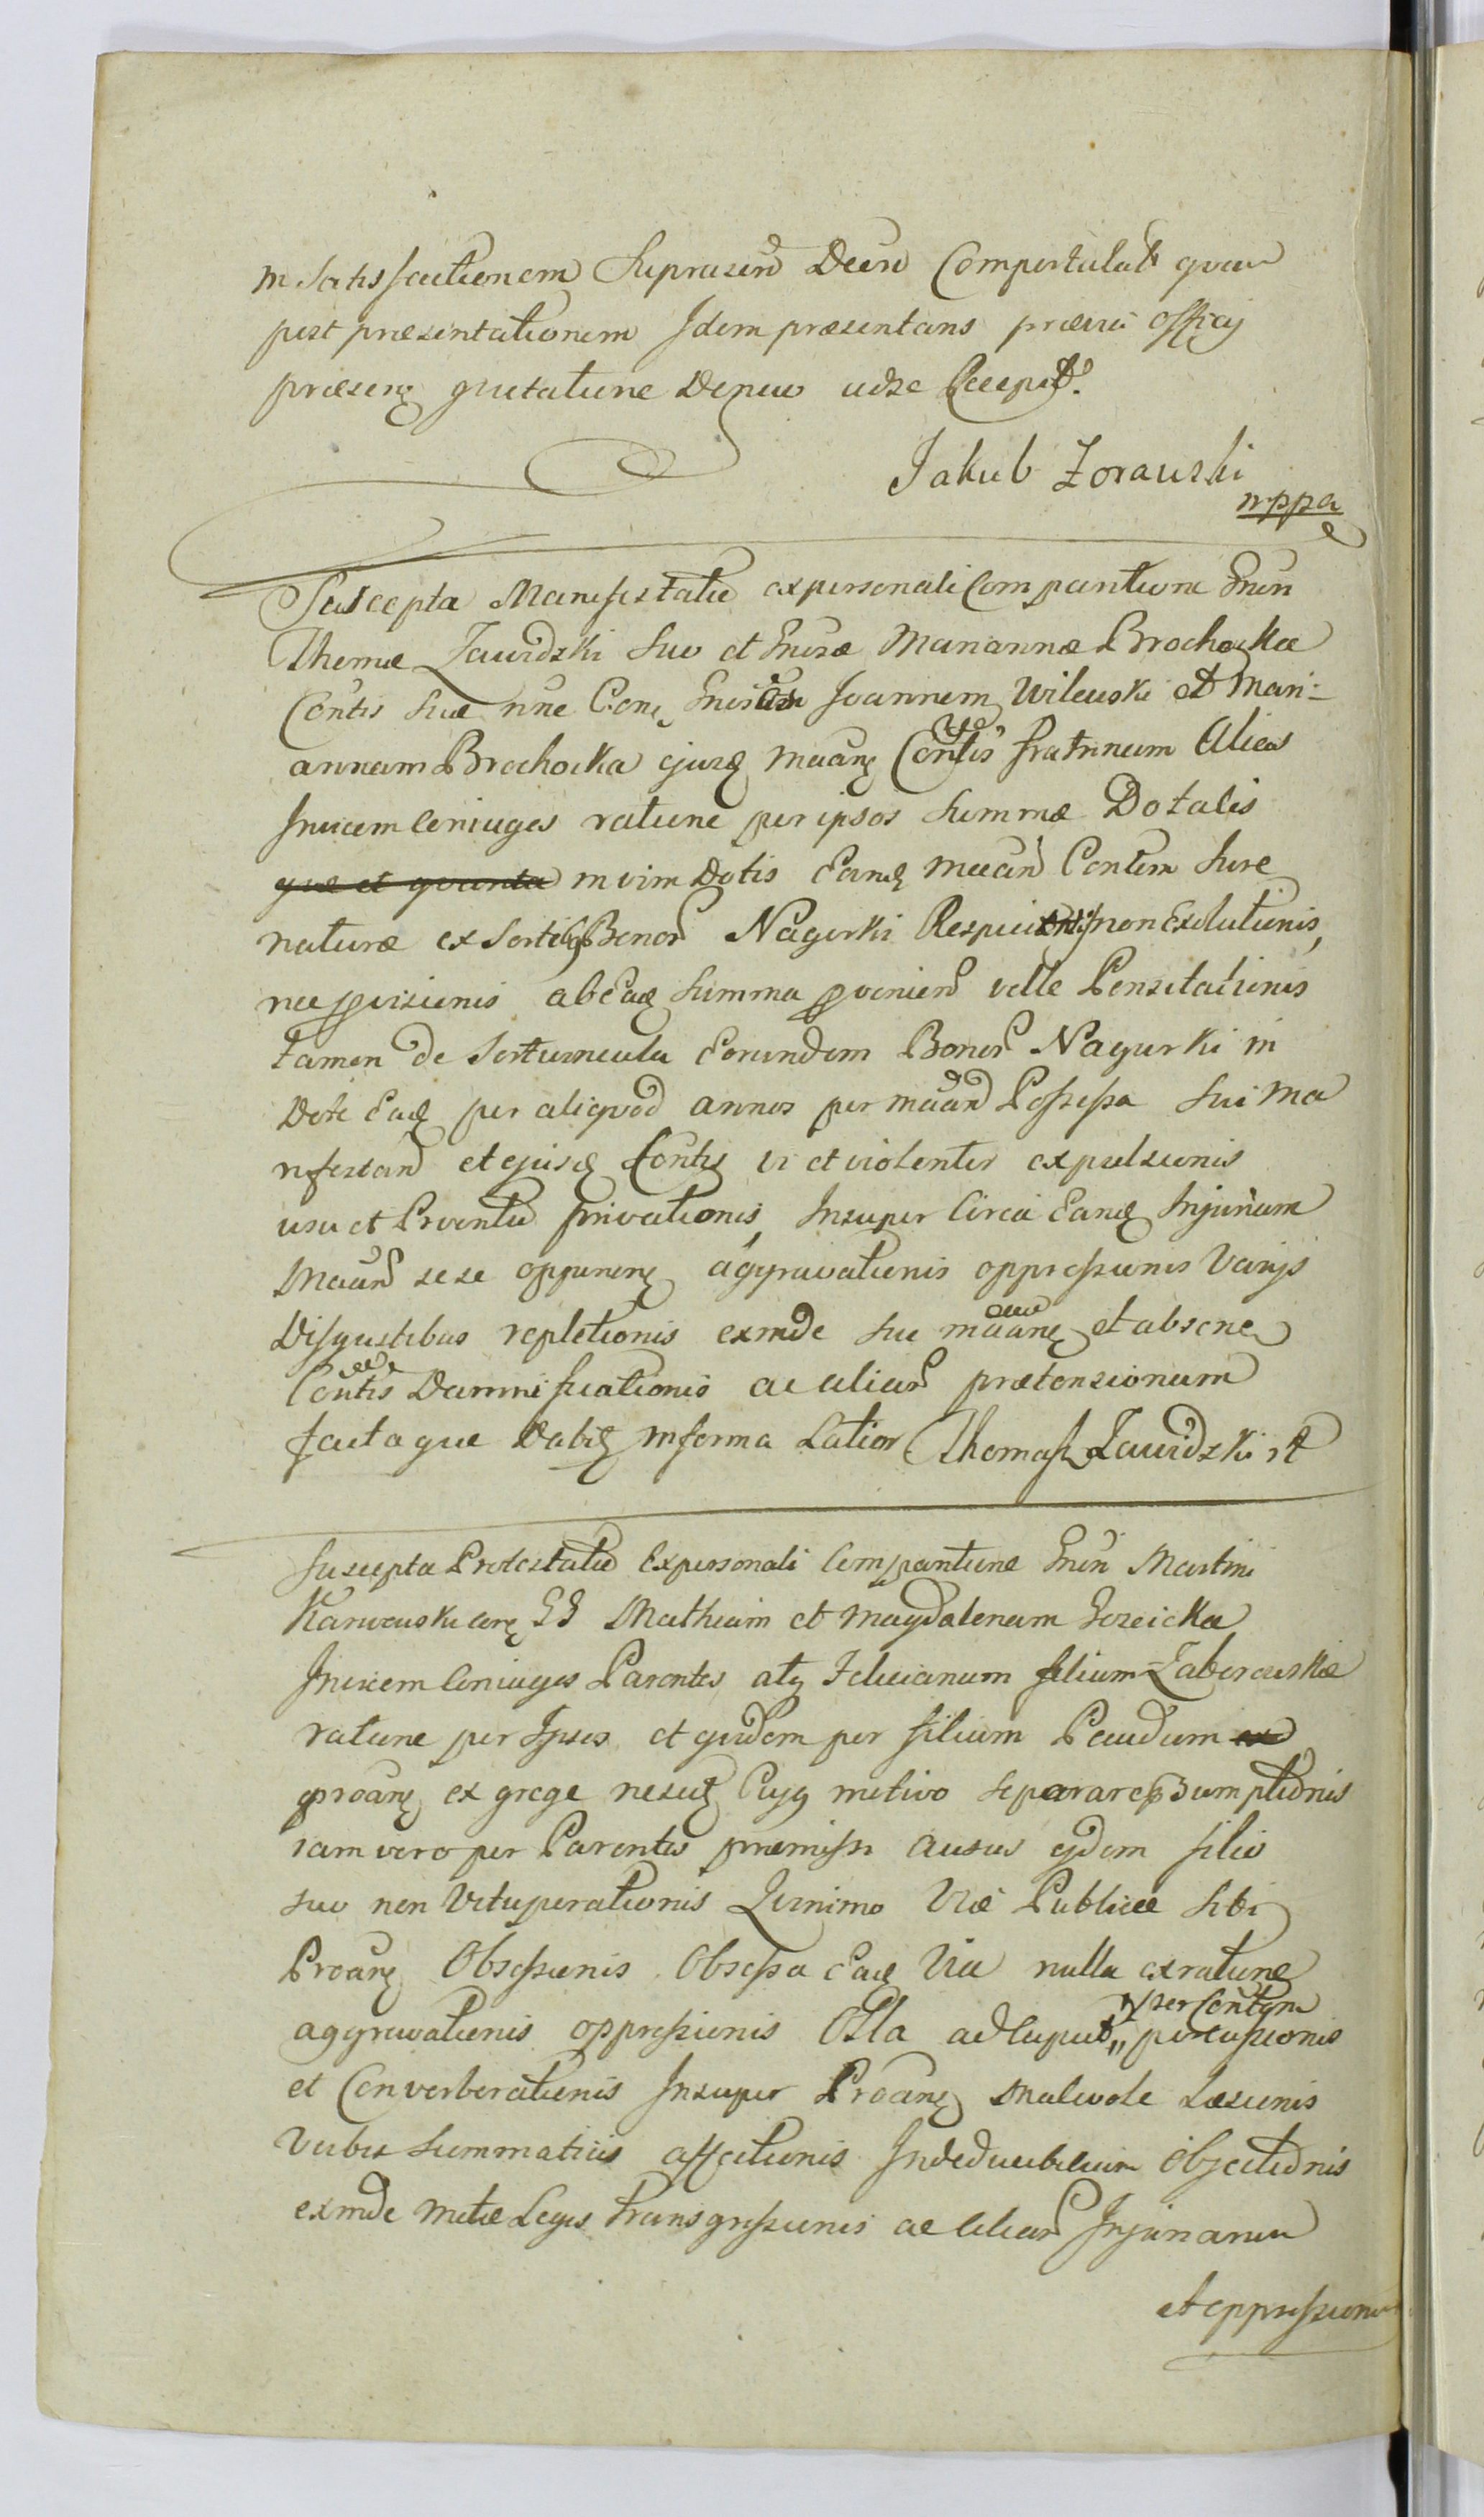 in Satisfactionem Suprasend Decre Comportulat quam
post præsentationem Idem præsentans prævia Officij
præsens quietatione Denuo adse Recepit.
Jakub Zorawski
mppa
Suscepta Manifestatio expersonali Comparitione Gnen
Thomæ Zawidzki Suo et Gnosæ Mariannæ Brochockæ
Contis Suæ nne Con Gnosum Joannem Wilewski et Mari-
annam Brochocka ejusq maang Contis fratrineam Alias
Invicem Coniuges ratione per ipsos Summæ Dotalis
quæ et quanta in vim Dotis Eandq maand Contem Jure
naturæ ex Sortibq Bonor Nagorki non Exolutionis,
nec provisionis ab Eadq Summa provenien velle Pensitationis
tamen de Sortiuncula Eorundem Bonor Nagurki in
Dote Eadq per aliqvod annos per maand Possessa Sui ma
nifestand et ejusdq Contis vi et violenter expulsionis
usu et Proventu privationis, Insuper Circa Eandq Injuriam
Maand sese opponeng aggravationis oppressionis Varijs
Disgustibus repletionis exinde Suc maang et absene
Contis Damnificationis ac aliar prætensionum
factaque Dabitq in forma Latior Thomasz Zawidzki
Suscepta Protestatio Expersonali Comparitione Gnen Martini
Karwowski con GG Mathiam et Magdalenam Gozdzicka
Invicem Coniuges Parentes atq Felicianum filium Zaborowskie
ratione per Ipsos et qvidem per filium Pecudum
proang ex grege nescitq Cujq motivo Separare Sumptionis
iam vero per Parentes præmissi ausus ejdem filio
suo non Vituperationis Qvinimo Viæ Publicæ Sibi
Proang Obsessionis Obsessa Eadq Via nulla ex ratione
aggravationis oppressionis Olla ad Caput,, percussionis
et Converberationis Insuper Proang Malevole Læsionis
Verbis Summatiuis affectionis Objectionis
exinde Metæ Legis transgressionis ac aliar Injuriarum
et oppressionu